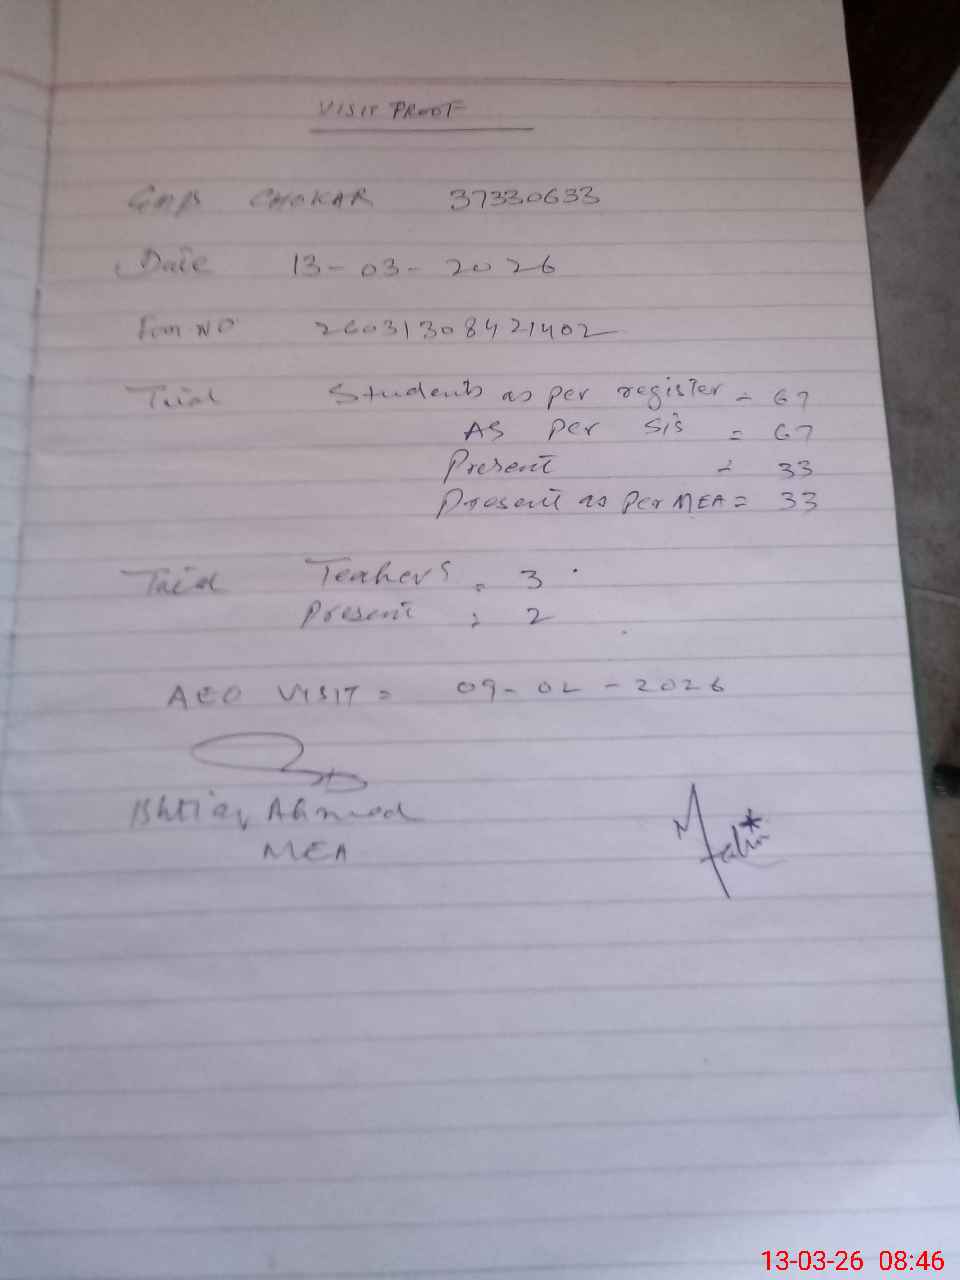 VISIT PROOF
GMPS CHOKAR 37330633
Date 13-03-2026
Form NO 26031308421402
Total Students as per register = 67
AS per SIS = 67
Present = 33
Present as per MEA = 33
Total Teachers = 3
Present = 2
AEO VISIT = 09-02-2026
Ishtiaq Ahmed
MEA
13-03-26 08:46